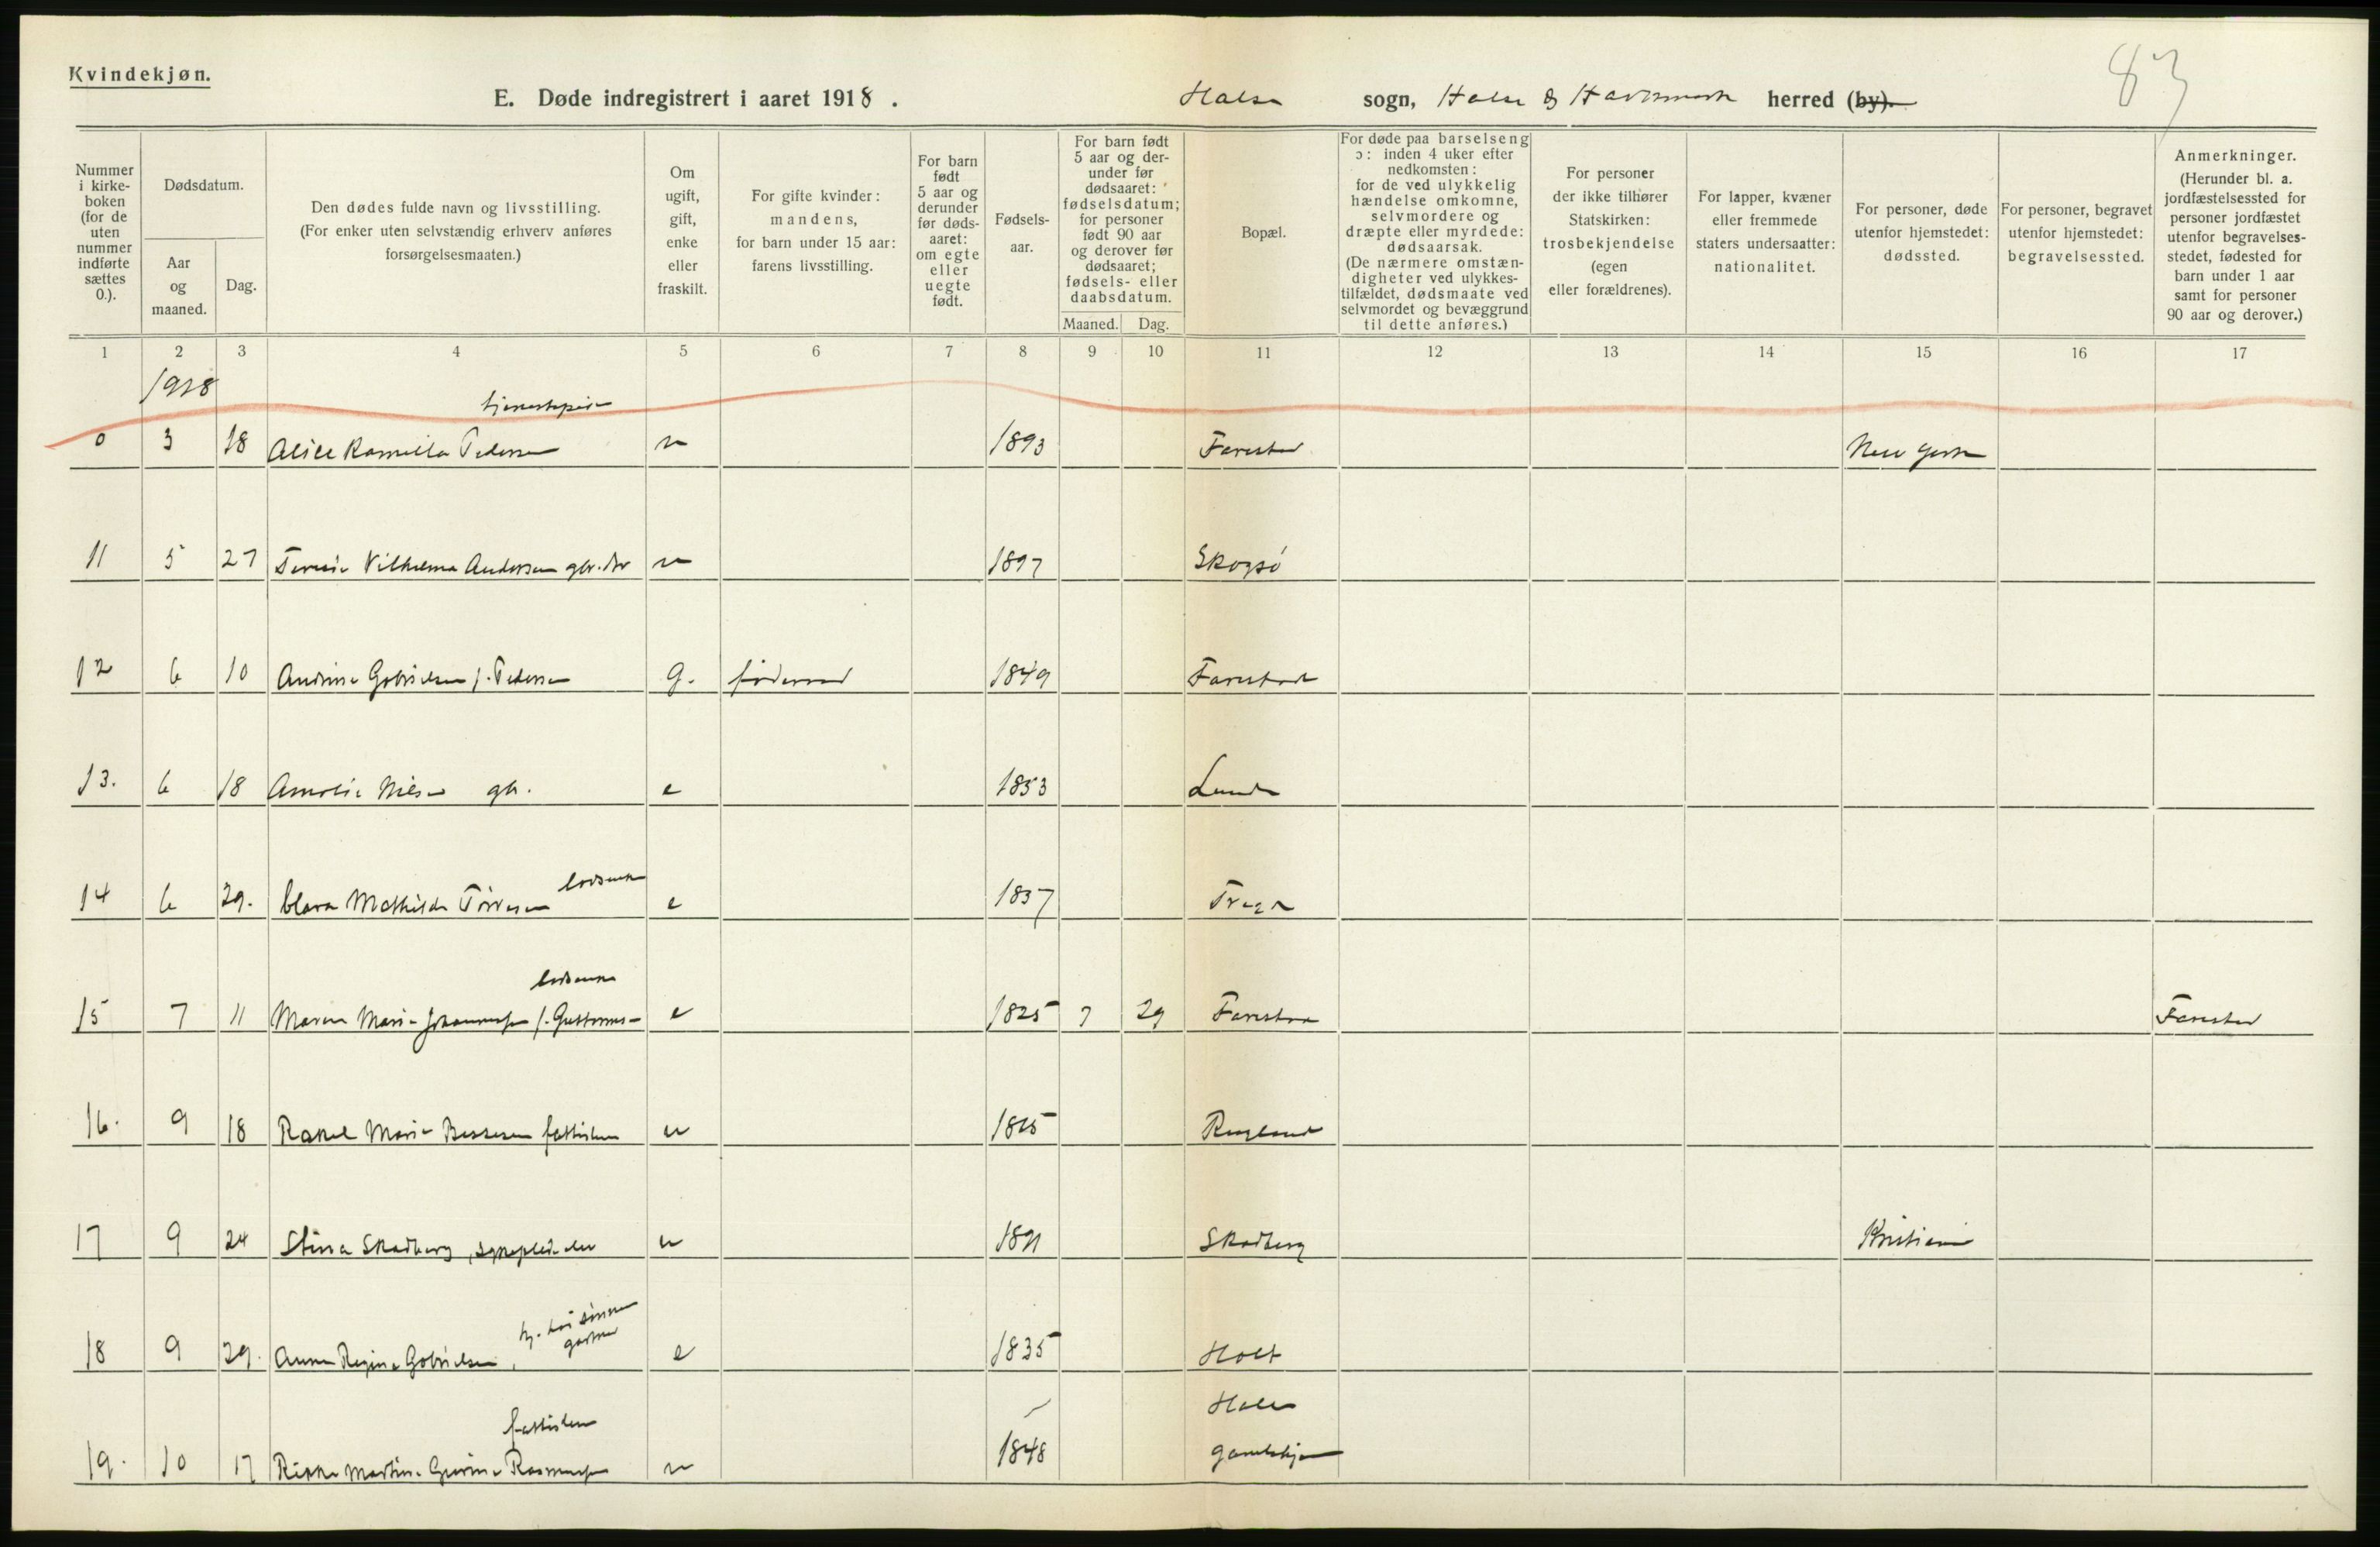 Kvindekjøn.
83
E. Døde indregistrert i aaret 1918. Halse sogn, Halse & Harkmark herred (by).
Nummer i kirkeboken (for de uten nummer indførte sættes 0.).
Dødsdatum.
Aar og maaned.
Dag.
Den dødes fulde navn og livsstilling. (For enker uten selvstændig erhverv anføres forsørgelsesmaaten.)
Om ugift, gift, enke eller fraskilt.
For gifte kvinder: mandens, for barn under 15 aar: farens livsstilling.
For barn født 5 aar og derunder før dødsaaret: om egte eller uegte født.
Fødselsaar.
For barn født 5 aar og derunder før dødsaaret: fødselsdatum; for personer født 90 aar og derover før dødsaaret; fødsels- eller daabsdatum.
Maaned. Dag.
Bopæl.
For døde paa barselseng ɔ: inden 4 uker efter nedkomsten: for de ved ulykkelig hændelse omkomne, selvmordere og dræpte eller myrdede: dødsaarsak. (De nærmere omstændigheter ved ulykkestilfældet, dødsmaate ved selvmordet og bevæggrund til dette anføres.)
For personer der ikke tilhører Statskirken: trosbekjendelse (egen eller forældrenes).
For lapper, kvæner eller fremmede staters undersaatter: nationalitet.
For personer, døde utenfor hjemstedet: dødssted.
For personer, begravet utenfor hjemstedet: begravelsessted.
Anmerkninger. (Herunder bl. a. jordfæstelsessted for personer jordfæstet utenfor begravelsesstedet, fødested for barn under 1 aar samt for personer 90 aar og derover.)
1 2 3 4 5 6 7 8 9 10 11 12 13 14 15 16 17
1918
tjenestepige
0 3 18 Alice Kamilla Pedersen u 1893 Farestad New York
11 5 27 Vilhelma Andersen gbr. dtr u 1897 Skogsø
12 6 10 Andrine Gabrielsen f. Pedersen g. føderaad 1849 Farestad
13. 6 18 Amalie Nilsen gb. e 1853 Lunde
lodsenke
14 6 29. Clara Mathilde Tørresen e 1837 Tregde
lodsenke
15 7 11 Maren Marie Johannesen f. e 1825 7 29 Farestad Farestad
16. 9 18 Rakel Marie Berntsen fattiglem u Ringland
17 9 24 Stina Skadberg, sykepleierske u Skadberg Kristiania
hj. hos sønnen
gaardbr
18 9 29. Anna Regine Gabrielsen, e 1835 Holt
fattiglem Halse
19. 10 17 Rikke Martine Gurine Rasmussen u 1848 gamlehjem